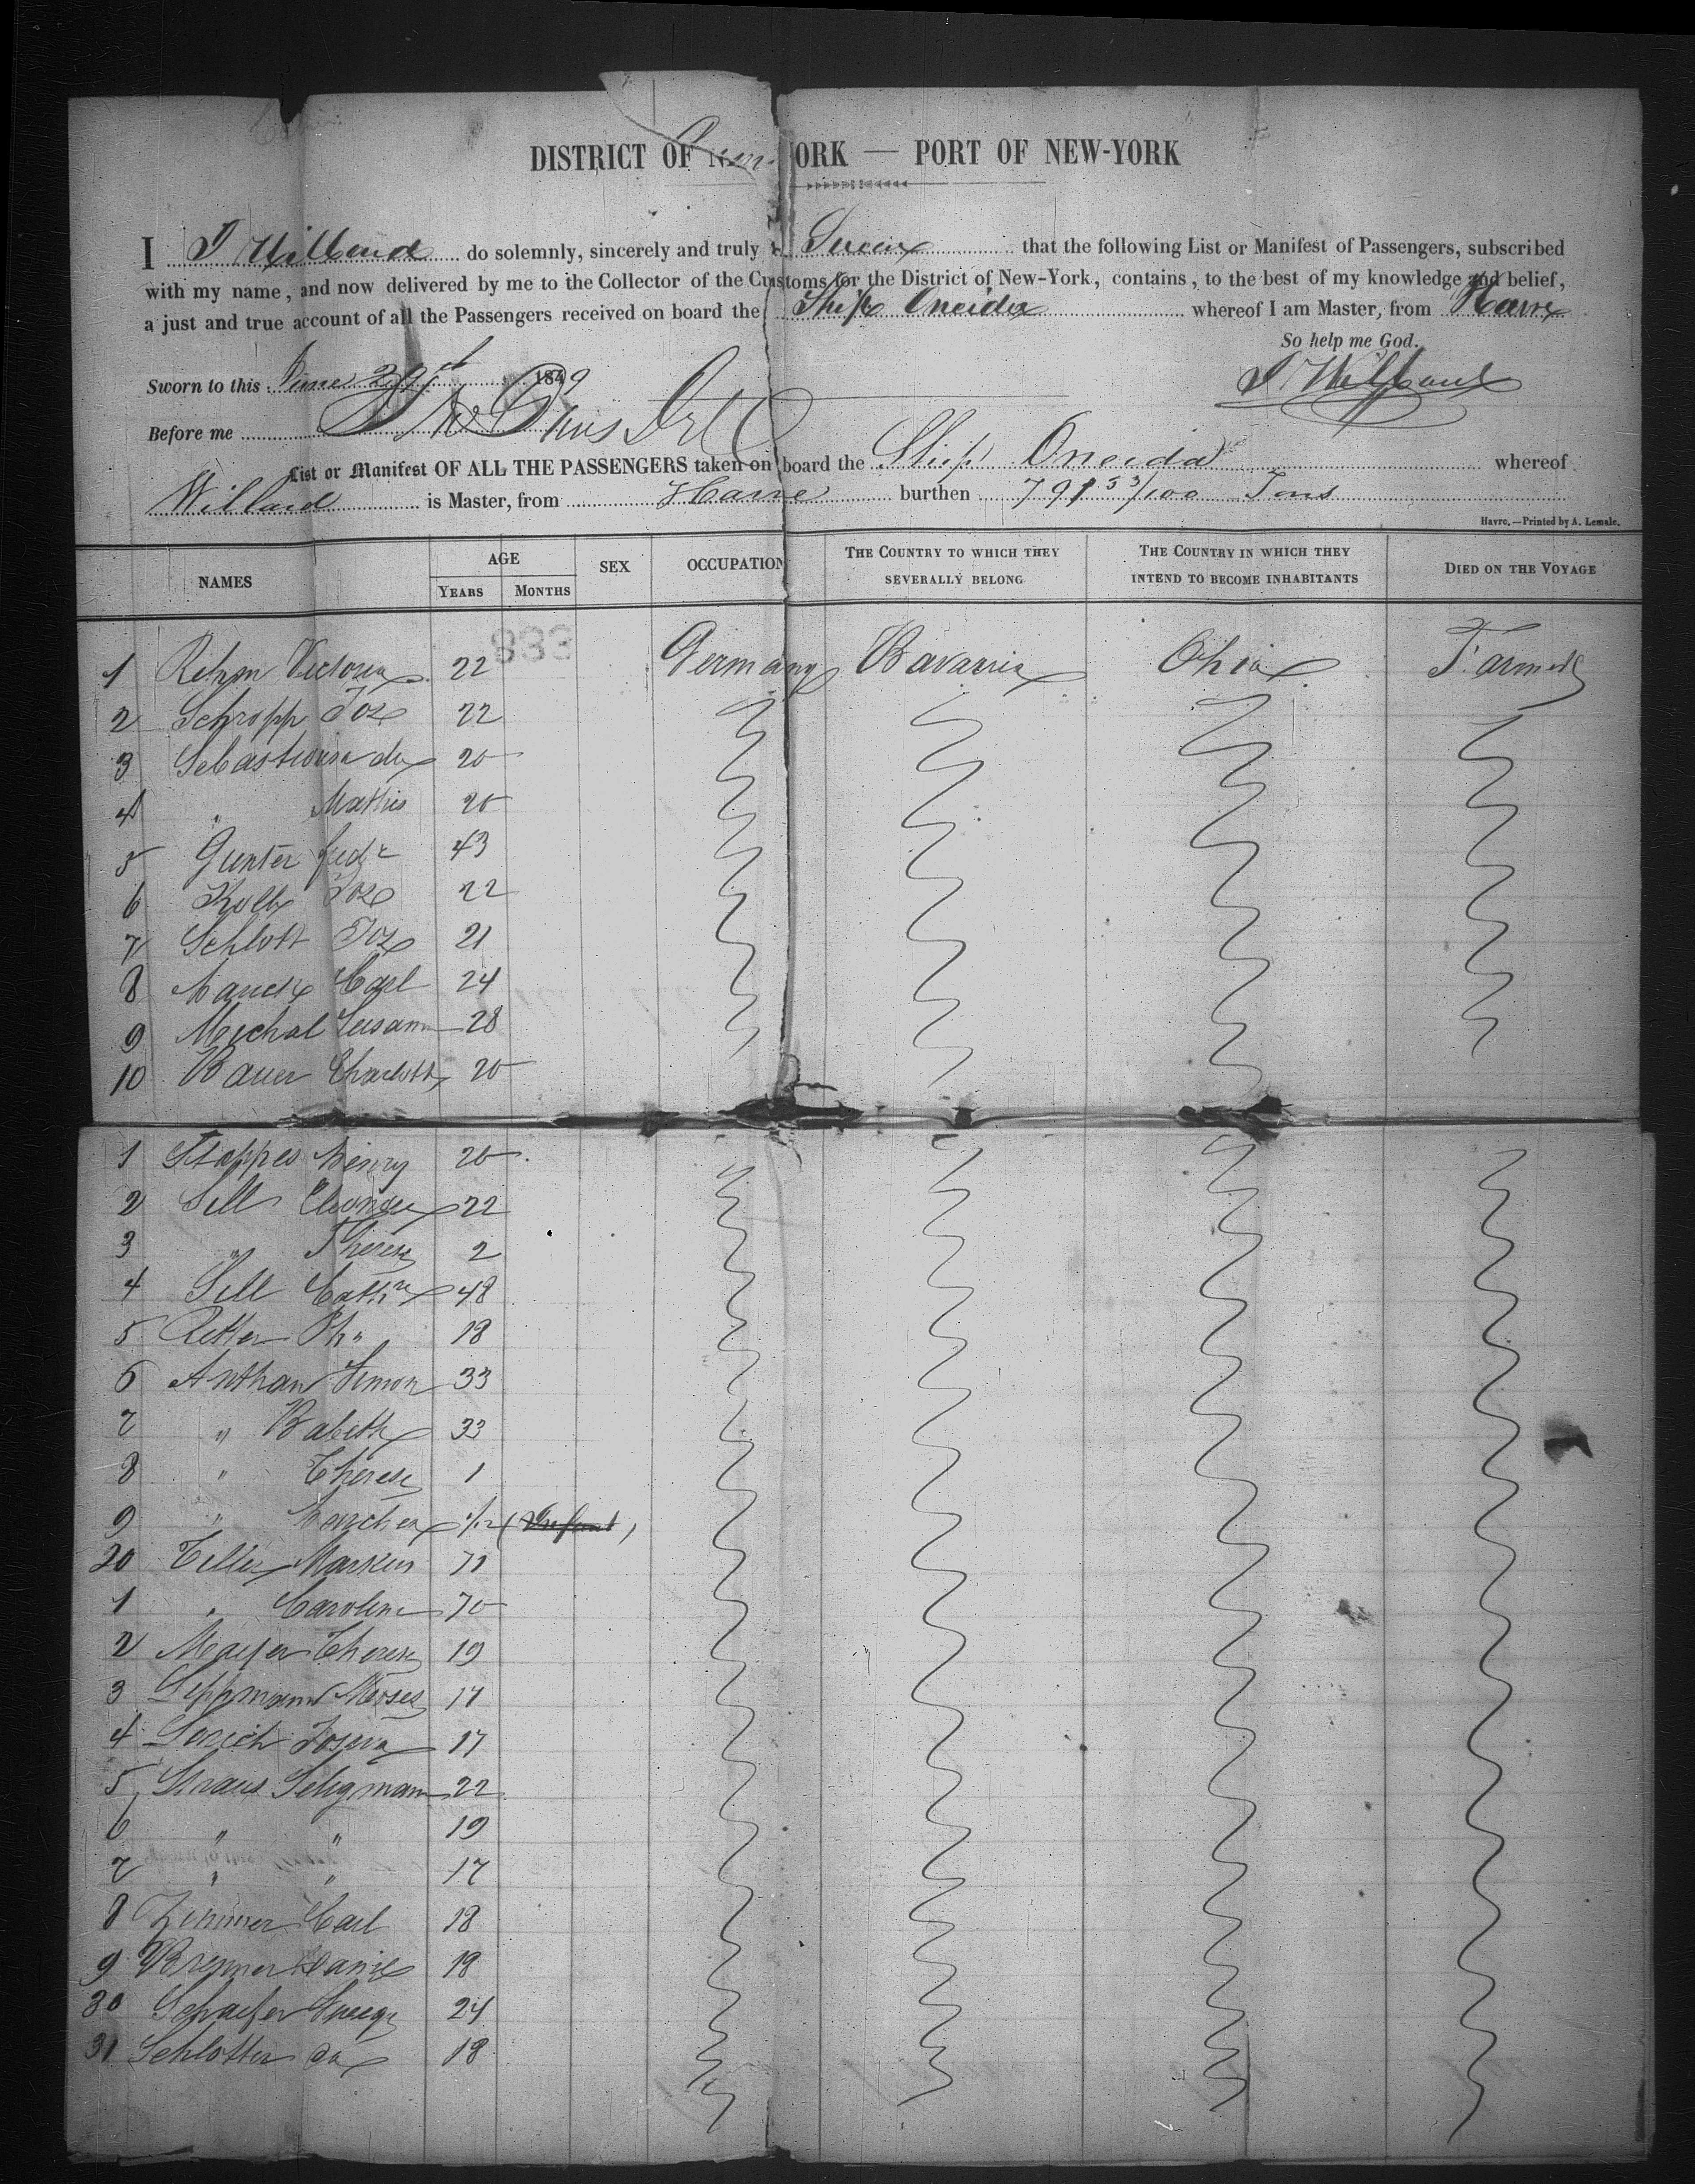 DISTRICT OF New-YORK — PORT OF NEW-YORK
I J Willard do solemnly, sincerely and truly Swear that the following List or Manifest of Passengers, subscribed
with my name, and now delivered by me to the Collector of the Customs for the District of New-York, contains, to the best of my knowledge and belief,
a just and true account of all the Passengers received on board the Ship Oneida whereof I am Master, from Havre
So help me God.
Sworn to this June 29th 1849
J Willard
Before me
List or Manifest OF ALL THE PASSENGERS taken on board the Ship Oneida whereof
Willard is Master, from Havre burthen 791 53/100 Tons
Havre.—Printed by A. Lemale.
NAMES AGE YEARS MONTHS SEX OCCUPATION THE COUNTRY TO WHICH THEY SEVERALLY BELONG THE COUNTRY IN WHICH THEY INTEND TO BECOME INHABITANTS DIED ON THE VOYAGE
883
1 Victoria 22 Germany Bavaria Ohio Farmers
2 Schropp Jos 22
3 Sebastian 20
4 " Mathis 20
5 Gunter fredr 43
6 Kolb Jos 22
7 Schlott Jos 21
8 Carl 24
9 Michal Susann 28
10 Bauer Charlott 20
1 Stappes Henry 20
2 Sill 22
3 " Therese 2
4 Sill Cathne 48
5 Retter Ph" 18
6 Anthan Simon 33
7 " Babeth 33
8 " Therese 1
9 " 1/12 (Infant)
20 Teller Markus 71
1 " Caroline 70
2 Mayer Therese 19
3 Lippmann Moses 17
4 17
5 Straus Seligmann 22
6 " " 19
7 " " 17
8 Zimmer Carl 18
9 Brenner Daniel 18
30 Schaefer 24
31 Schlotter do 18